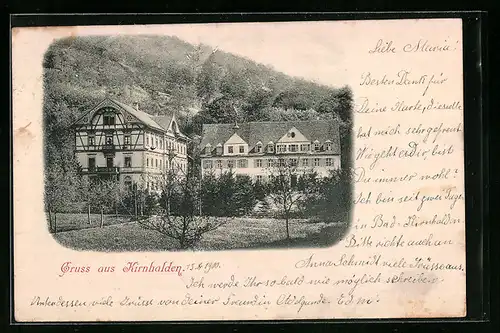 Liebe Maria!
Besten Dank für
Deine Karte, dieselbe
hat mich sehr gefreut
Wie geht es dir, bist
Du immer wohl?
Ich bin seit zwei Tagen
in Bad-Kirnhalden
Bitte richte auch an
Anna Schmidt viele Grüsse aus.
Gruss aus Kirnhalden, 15.8.1900.
Ich werde Ihr so bald wie möglich schreiben.
Unterdessen viele Grüsse von deiner Freundin Hildgunde